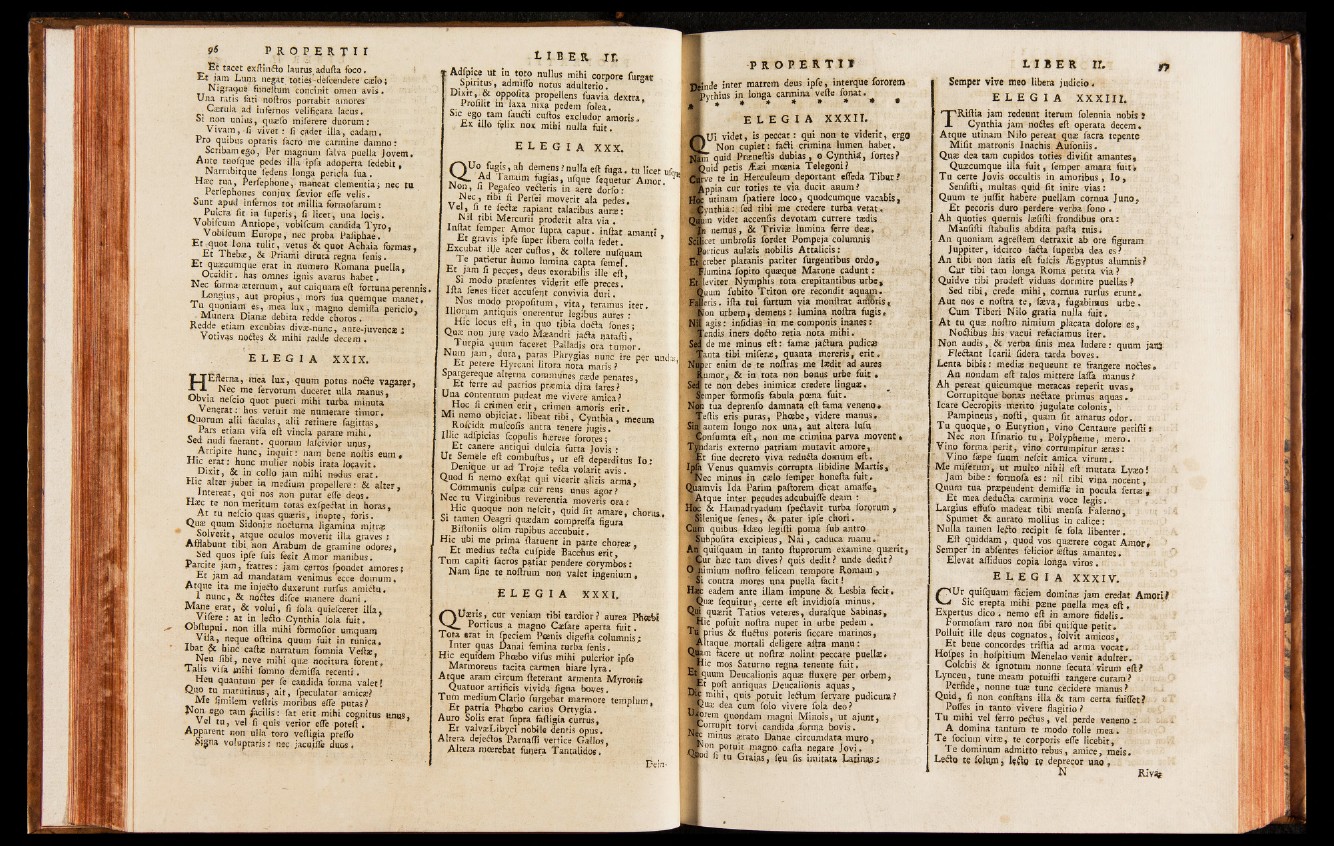 96 PROPERTII
Et tacet exſtincto laurus aduſta foco.
Et jam Luna negat toties deſcendere cælo;
Nigraque funeſtum concinit omen avis.
Una ratis fati noſtros portabit amores
Cærula ad infernos velificara lacus.
Si non unius, quæſo miſerere duorum:
Vivam, ſi vivet: ſi cadet illa, cadam.
Pro quibus optatis ſacro me carmine damno:
Scribam ego, Per magnum ſalva puella Jovem.
Ante tuoſque pedes illa ipſa adoperta ſedebit,
Narrabitque ſedens longa pericla ſua.
Hæc tua, Perſephone, maneat clementia; nec tu
Perſephones conjux ſævior eſſe velis.
Sunt apud infernos tot millia formoſarum:
Pulcra ſit in ſuperis, ſi licet, una locis.
Vobiſcum Antiope, vobiſcum candida Tyro,
Vobiſcum Europe, nec proba Paſiphae.
Et quot Iona tulit, vetus & quot Achaia formas,
Et Thebæ, & Priami diruta regna ſenis.
Et quæcumque erat in numero Romana puella,
Occidit. has omnes ignis avarus habet.
Nec forma æternum, aut cuiquam eſt fortuna perennis.
Longius, aut propius, mors ſua quemque manet,
Tu quoniam es, mea lux, magno demiſſa periclo,
Munera Dianæ debita redde choros.
Redde etiam excubias divæ-nunc, ante-juvencæ;
Votivas noctes & mihi radde decem.
ELEGIA XXIX.
HEſterna, mea lux, quum potus nocte vagarer,
Nec me ſervorum duceret ulla manus,
Obvia neſcio quot pueri mihi turba minuta
Venerat: hos vetuit me numerare timor.
Quorum alii faculas, alii retinere ſagittas,
Pars etiam viſa eſt vincla parare mihi.
Sed nudi fuerant. quorum laſcivior unus,
Arripite hunc, inquit: nam bene noſtis eum.
Hic erat: hunc mulier nobis irata locavit.
Dixit, & in collo jam mihi nodus erat.
Hic alter jubet in medium propellere: & alter,
Intereat, qui nos non putat eſſe deos.
Hæc te non meritum totas exſpectat in horas,
At tu neſcio quas quæris, inepte, foris.
Quæ quum Sidoniæ nocturna ligamina mitræ
Solverit, atque oculos moverit illa graves:
Afflabunt tibi non Arabum de gramine odores,
Sed quos ipſe ſuis fecit Amor manibus.
Parcite jam, fratres: jam certos ſpondet amores;
Et jam ad mandatam venimus ecce domum.
Atque ita me injecto duxerunt rurſus amictu.
I nunc, & noctes diſce manere domi.
Mane erat, & volui, ſi ſola quieſceret illa,
Viſere: at in lecto Cynthia ſola fuit.
Obſtupui. non illa mihi formoſior umquam
Viſa, neque oſtrina quum fuit in tunica,
Ibat & hinc caſtæ narratum ſomnia Veſtæ,
Neu ſibi, neve mihi quæ nocitura forent.
Talis viſa mihi ſomno demiſſa recenti.
Heu quantum per ſe candida forma valet!
Quo tu matutinus, ait, ſpeculator amicæ?
Me ſimilem veſtris moribus eſſe putas?
Non ego tam facilis: ſat erit mihi cognitus unus,
Vel tu, vel ſi quis verior eſſe poteſt.
Apparent non ulla toro veſtigia preſſo
Signa voluptatis: nec jacuiſſe duos.
LIBER II.
Adſpice ut in toto nullus mihi corpore ſurgat
Spiritus, admiſſo notus adulterio.
Dixit, & oppoſita propellens ſuavia dextra,
Proſilit in laxa nixa pedem ſolea.
Sic ego tam ſancti cuſtos excludor amoris.
Ex illo felix nox mihi nulla fuit.
ELEGIA XXX.
QUo fugis, ah demens? nulla eſt fuga. tu licet uſque
Ad Tanaim fugias, uſque ſequetur Amor.
Non, ſi Pegaſeo vecteris in aere dorſo:
Nec, tibi ſi Perſei moverit ala pedes,
Vel, ſi te ſectæ rapiant talaribus auræ:
Nil tibi Mercurii proderit alta via.
Inſtat ſemper Amor ſupra caput. inſtat amanti,
Et gravis ipſe ſuper libera colla ſedet.
Excubat ille acer cuſtos, & tollere nuſquam
Te patietur humo lumina capta ſemel.
Et jam ſi pecces, deus exorabilis ille eſt,
Si modo præſentes viderit eſſe preces.
Iſta ſenes licet accuſent convivia duri.
Nos modo propoſitum, vita, teramus iter.
Illorum antiquis onerentur legibus aures:
Hic locus eſt, in quo tibia docta ſones;
Quæ non jure vado Mæandri jacta nataſti,
Turpia quum faceret Palladis ora tumor.
Num jam, dura, paras Phrygias nunc ire per undas,
Et petere Hyrcani litora nota maris?
Spargereque alterna communes cæde penates,
Et ferre ad patrios præmia dira lares?
Una contentum pudeat me vivere amica?
Hoc ſi crimen erit, crimen amoris erit.
Mi nemo objiciat. libeat tibi, Cynthia, mecum
Roſcida muſcoſis antra tenere jugis.
Illic adſpicias ſcopulis hærere ſorores;
Et canere antiqui dulcia furta Jovis:
Ut Semele eſt combuſtus, ut eſt deperditus Io:
Denique ut ad Trojæ tecta volarit avis.
Quod ſi nemo exſtat qui vicerit alitis arma,
Communis culpæ cur reus unus agor?
Nec tu Virginibus reverentia moveris ora:
Hic quoque non neſcit, quid ſit amare, chorus.
Si tamen Oeagri quædam compreſſa figura
Biſtoniis olim rupibus accubuit.
Hic ubi me prima ſtatuent in parte choreæ,
Et medius tecta cuſpide Bacchus erit,
Tum capiti ſacros patiar pendere corymbos:
Nam ſine te noſtrum non valet ingenium.
ELEGIA XXXI.
QUæris, cur veniam tibi tardior? aurea Phœbi
Porticus a magno Cæſare aperta fuit.
Tota erat in ſpeciem Pœnis digeſta columnis;
Inter quas Danai femina turba ſenis.
Hic equidem Phœbo viſus mihi pulcrior ipſo
Marmoreus tacita carmen hiare lyra.
Atque aram circum ſteterant armenta Myronis
Quatuor artificis vivida ſigna boves.
Tum medium Clario ſurgebat marmore templum,
Et patria Phœbo carius Ortygia.
Auro Solis erat ſupra faſtigia currus,
Et valvæ Libyci nobile dentis opus.
Altera dejectos Parnaſſi vertice Gallos,
Altera mœrebat funera Tantalidos.
Dein-
PROPERTII
Deinde inter matrem deus ipſe, interque ſororem
Pythius in longa carmina veſte ſonat.
* * * * * * * *
ELEGIA XXXII.
QUi videt, is peccat: qui non te viderit, ergo
Non cupiet: facti crimina lumen habet.
Nam quid Præneſtis dubias, o Cynthia, ſortes?
Quid petis Ææi mœnia Telegoni?
Curve te in Herculeum deportant eſſeda Tibur?
Appia cur toties te via ducit anum?
Hoc utinam ſpatiere loco, quodcumque vacabis,
Cynthia: ſed tibi me credere turba vetat.
Quum videt accenſis devotam currere tædis
In nemus, & Triviæ lumina ferre deæ.
Scilicet umbroſis ſordet Pompeja columnis
Porticus aulæis nobilis Attalicis:
Et creber platanis pariter ſurgentibus ordo,
Flumina ſopito quæque Marone cadunt:
Et leviter Nymphis tota crepitantibus urbe,
Quum ſubito Triton ore recondit aquam.
Falleris. iſta tui furtum via monſtrat amoris,
Non urbem, demens: lumina noſtra fugis.
Nil agis: inſidias in me componis inanes:
Tendis iners docto retia nota mihi.
Sed de me minus eſt: famæ jactura pudicæ
Tanta tibi miſeræ, quanta mereris, erit.
Nuper enim de te noſtras me lædit ad aures
Rumor, & in tota non bonus urbe fuit.
Sed te non debes inimicæ credere linguæ.
Semper formoſis fabula pœna fuit.
Non tua deprenſo damnata eſt fama veneno.
Teſtis eris puras, Phœbe, videre manus.
Sin autem longo nox una, aut altera luſu
Conſumta eſt, non me crimina parva movent.
Tyndaris externo patriam mutavit amore,
Et ſine decreto viva reducta domum eſt.
Ipſa Venus quamvis corrupta libidine Martis,
Nec minus in cælo ſemper honeſta fuit.
Quamvis Ida Parim paſtorem dicat amaſſe,
Atque inter pecudes adcubuiſſe deam:
Hoc & Hamadryadum ſpectavit turba ſororum,
Silenique ſenes, & pater ipſe chori.
Cum quibus Idæo legiſti poma ſub antro
Subpoſita excipiens, Nai, caduca manu.
An quiſquam in tanto ſtuprorum examine quærit,
Cur hæc tam dives? quis dedit? unde dedit?
O nimium noſtro felicem tempore Romam,
Si contra mores una puella facit!
Hæc eadem ante illam impune & Lesbia fecit.
Quæ ſequitur, certe eſt invidioſa minus.
Qui quærit Tatios veteres, duraſque Sabinas,
Hic poſuit noſtra nuper in urbe pedem.
Tu prius & fluctus poteris ſiccare marinos,
Altaque mortali deligere aſtra manu:
Quam facere ut noſtræ nolint peccare puellæ.
Hic mos Saturno regna tenente fuit.
Et quum Deucalionis aquæ fluxere per orbem,
Et poſt antiquas Deucalionis aquas,
Dic mihi, quis potuit lectum ſervare pudicum?
Quæ dea cum ſolo vivere ſola deo?
Uxorem quondam magni Minois, ut ajunt,
Corrupit torvi candida forma bovis.
Nec minus ærato Danae circumdata muro,
Non potuit magno caſta negare Jovi.
Quod ſi tu Graias, ſeu ſis imitata Latinas;
LIBER II. 97
Semper vive meo libera judicio.
ELEGIA XXXIII.
TRiſtia jam redeunt iterum ſolennia nobis:
Cynthia jam noctes eſt operata decem.
Atque utinam Nilo pereat quæ ſacra tepente
Miſit matronis Inachis Auſoniis.
Quæ dea tam cupidos toties diviſit amantes,
Quæcumque illa fuit, ſemper amara fuit.
Tu certe Jovis occultis in amoribus, Io,
Senſiſti, multas quid ſit inire vias:
Quum te juſſit habere puellam cornua Juno,
Et pecoris duro perdere verba ſono.
Ah quoties quernis læſiſti frondibus ora:
Manſiſti ſtabulis abdita paſta tuis.
An quoniam agreſtem detraxit ab ore figuram
Juppiter, idcirco facta ſuperba dea es?
An tibi non ſatis eſt fuſcis Ægyptus alumnis?
Cur tibi tam longa Roma petita via?
Quidve tibi prodeſt viduas dormire puellas?
Sed tibi, crede mihi, cornua rurſus erunt.
Aut nos e noſtra te, ſæva, fugabimus urbe.
Cum Tiberi Nilo gratia nulla fuit.
At tu quæ noſtro nimium placata dolore es,
Noctibus his vacui refaciamus iter.
Non audis, & verba ſinis mea ludere: quum jam
Flectant Icarii ſidera tarda boves.
Lenta bibis: mediæ nequeunt te frangere noctes.
An nondum eſt talos mittere laſſa manus?
Ah pereat quicumque meracas reperit uvas,
Corrupitque bonas nectare primus aquas.
Icare Cecropiis merito jugulate colonis,
Pampineus, noſti, quam ſit amarus odor.
Tu quoque, o Eurytion, vino Centaure periſti:
Nec non Iſmario tu, Polypheme, mero.
Vino forma perit, vino corrumpitur ætas:
Vino ſæpe ſuum neſcit amica virum.
Me miſerum, ut multo nihil eſt mutata Lyæo!
Jam bibe: formoſa es: nil tibi vina nocent,
Quum tua præpendent demiſſæ in pocula ſertæ,
Et mea deducta carmina voce legis.
Largius effuſo madeat tibi menſa Falerno,
Spumet & aurato mollius in calice:
Nulla tamen lecto recipit ſe ſola libenter.
Eſt quiddam, quod vos quærere cogat Amor.
Semper in abſentes felicior æſtus amantes.
Elevat aſſiduos copia longa viros.
ELEGIA XXXIV.
CUr quiſquam faciem dominæ jam credat Amori?
Sic erepta mihi pæne puella mea eſt.
Expertus dico. nemo eſt in amore fidelis.
Formoſam raro non ſibi quiſque petit.
Polluit ille deus cognatos, ſolvit amicos,
Et bene concordes triſtia ad arma vocat.
Hoſpes in hoſpitium Menelao venit adulter.
Colchis & ignotum nonne ſecuta virum eſt?
Lynceu, tune meam potuiſti tangere curam?
Perfide, nonne tuæ tunc cecidere manus?
Quid, ſi non conſtans illa & tam certa fuiſſet?
Poſſes in tanto vivere flagitio?
Tu mihi vel ferro pectus, vel perde veneno:
A domina tantum te modo tolle mea.
Te ſocium vitæ, te corporis eſſe licebit,
Te dominum admitto rebus, amice, meis.
Lecto te ſolum, lecto te deprecor uno,
N Rivæ